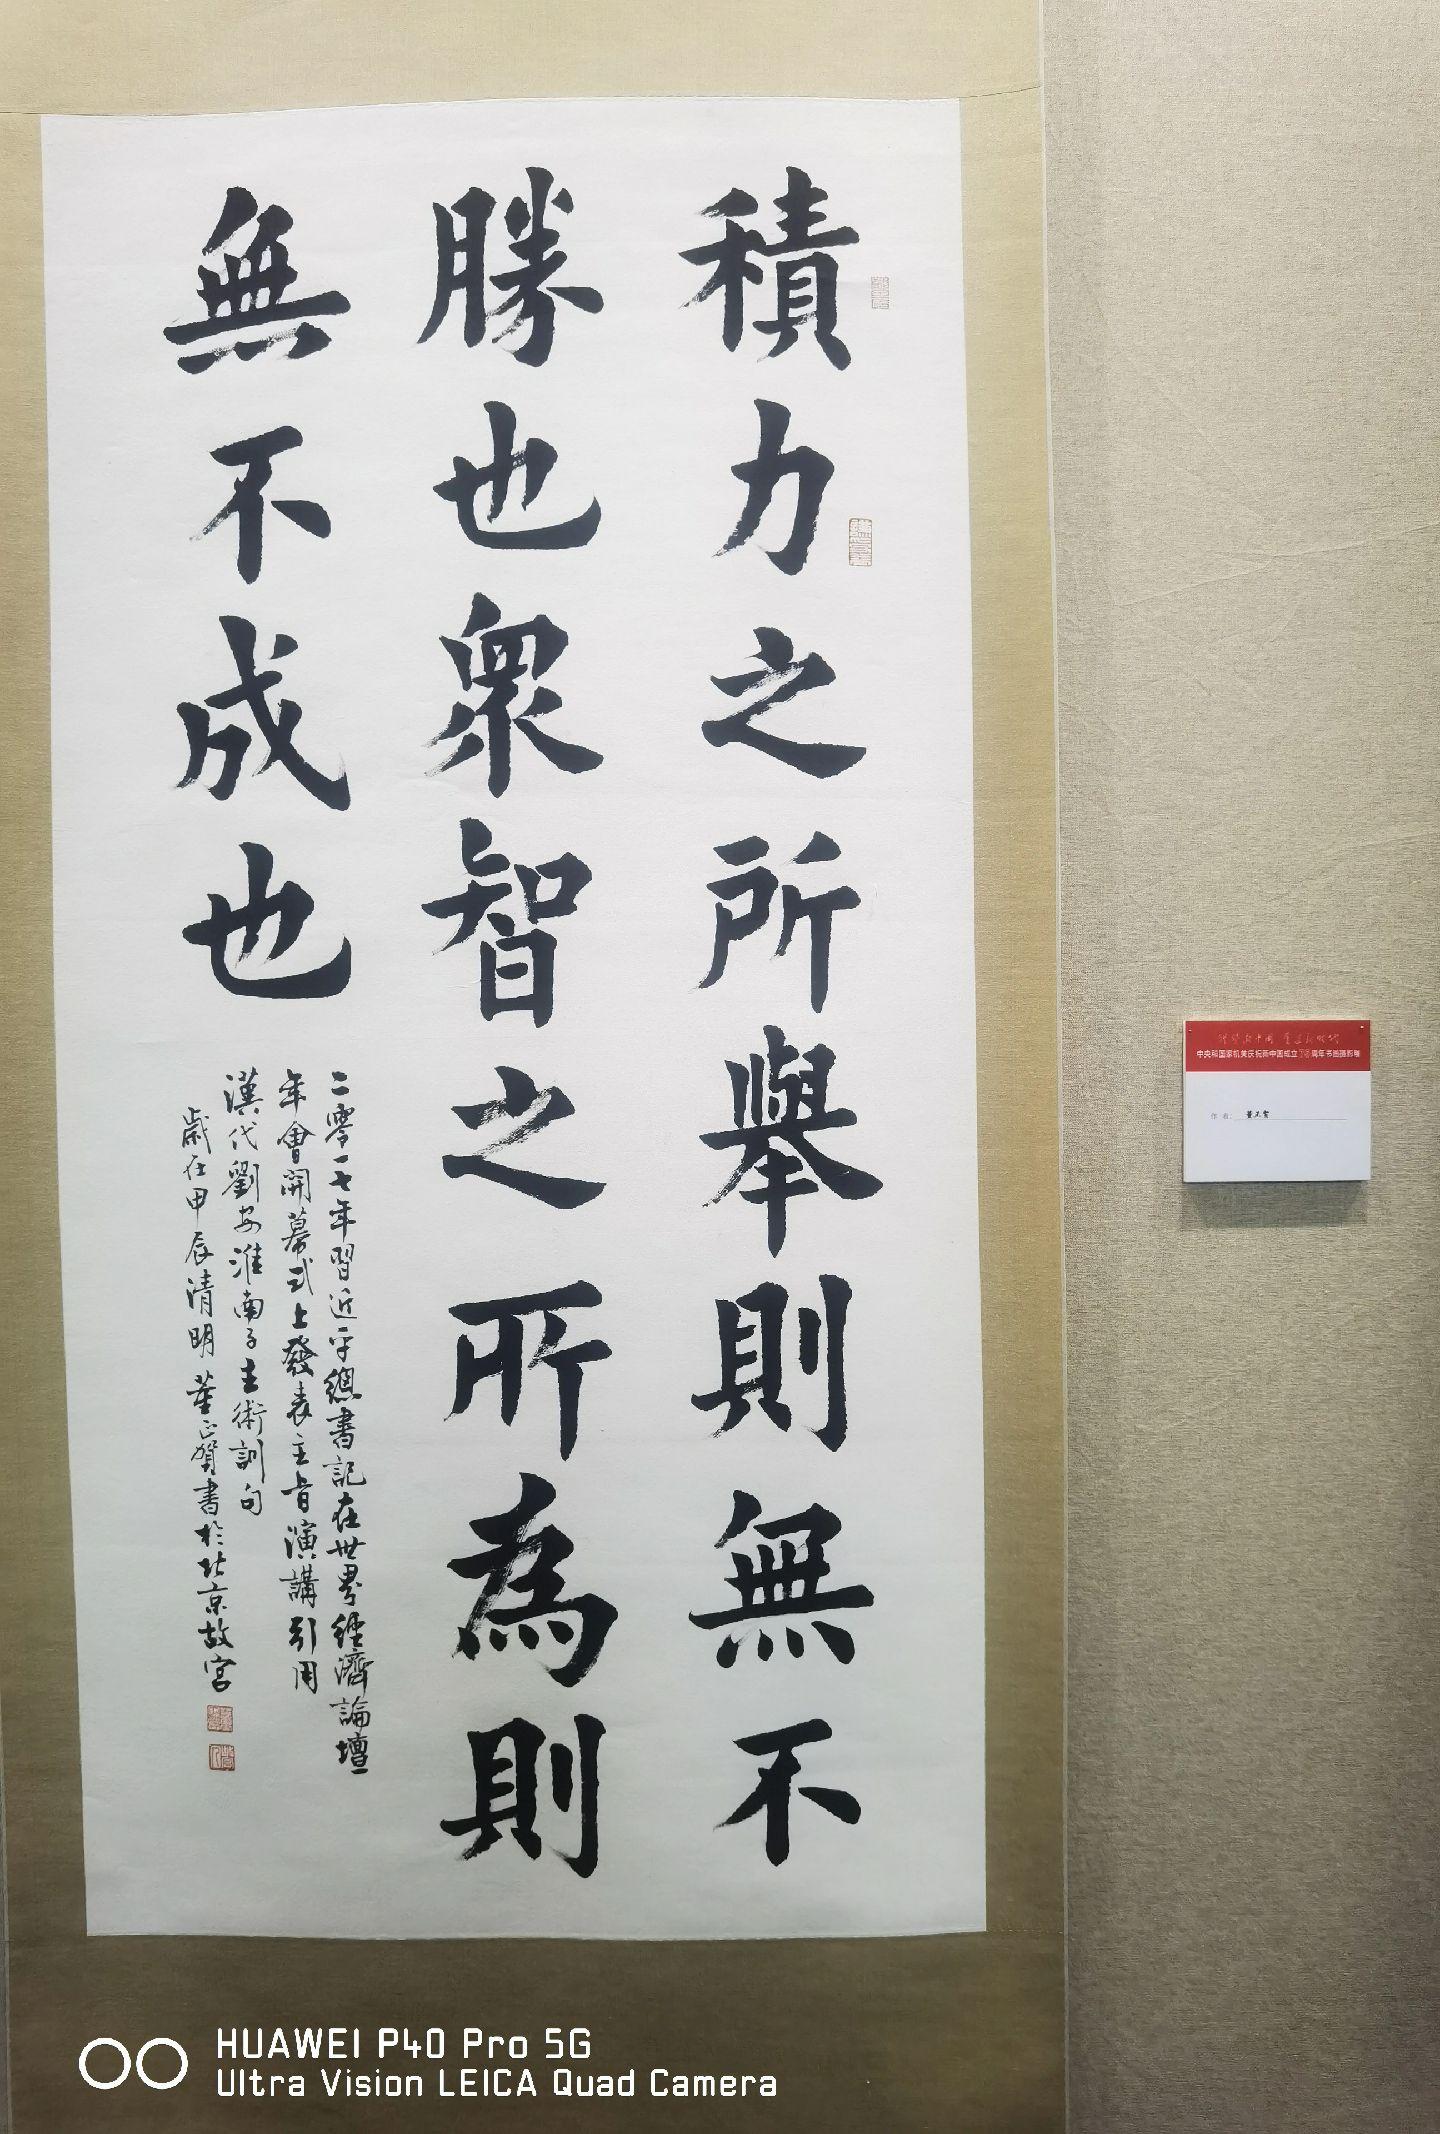 積力之所舉則無不
勝也衆智之所為則
無不成也
二零一七年習近平總書記在世界經濟論壇
年會開幕式上發表主旨演講引用
漢代劉安淮南子主術訓句
歲在甲辰清明董正賀書於北京故宮
中央和国家机关庆祝新中国成立75周年书画摄影展
作者: 董正賀
HUAWEI P40 Pro 5G
Ultra Vision LEICA Quad Camera